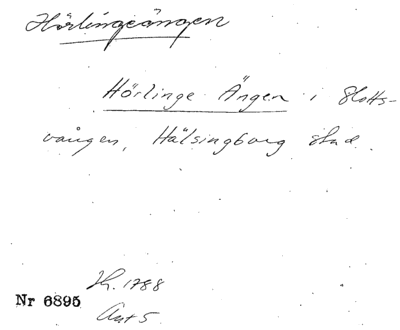 Hörlingeängen
Hörlinge Ängen i Slotts-
vången, Hälsingborg stad.
Jh. 1788
Nr 6895
Akt 5